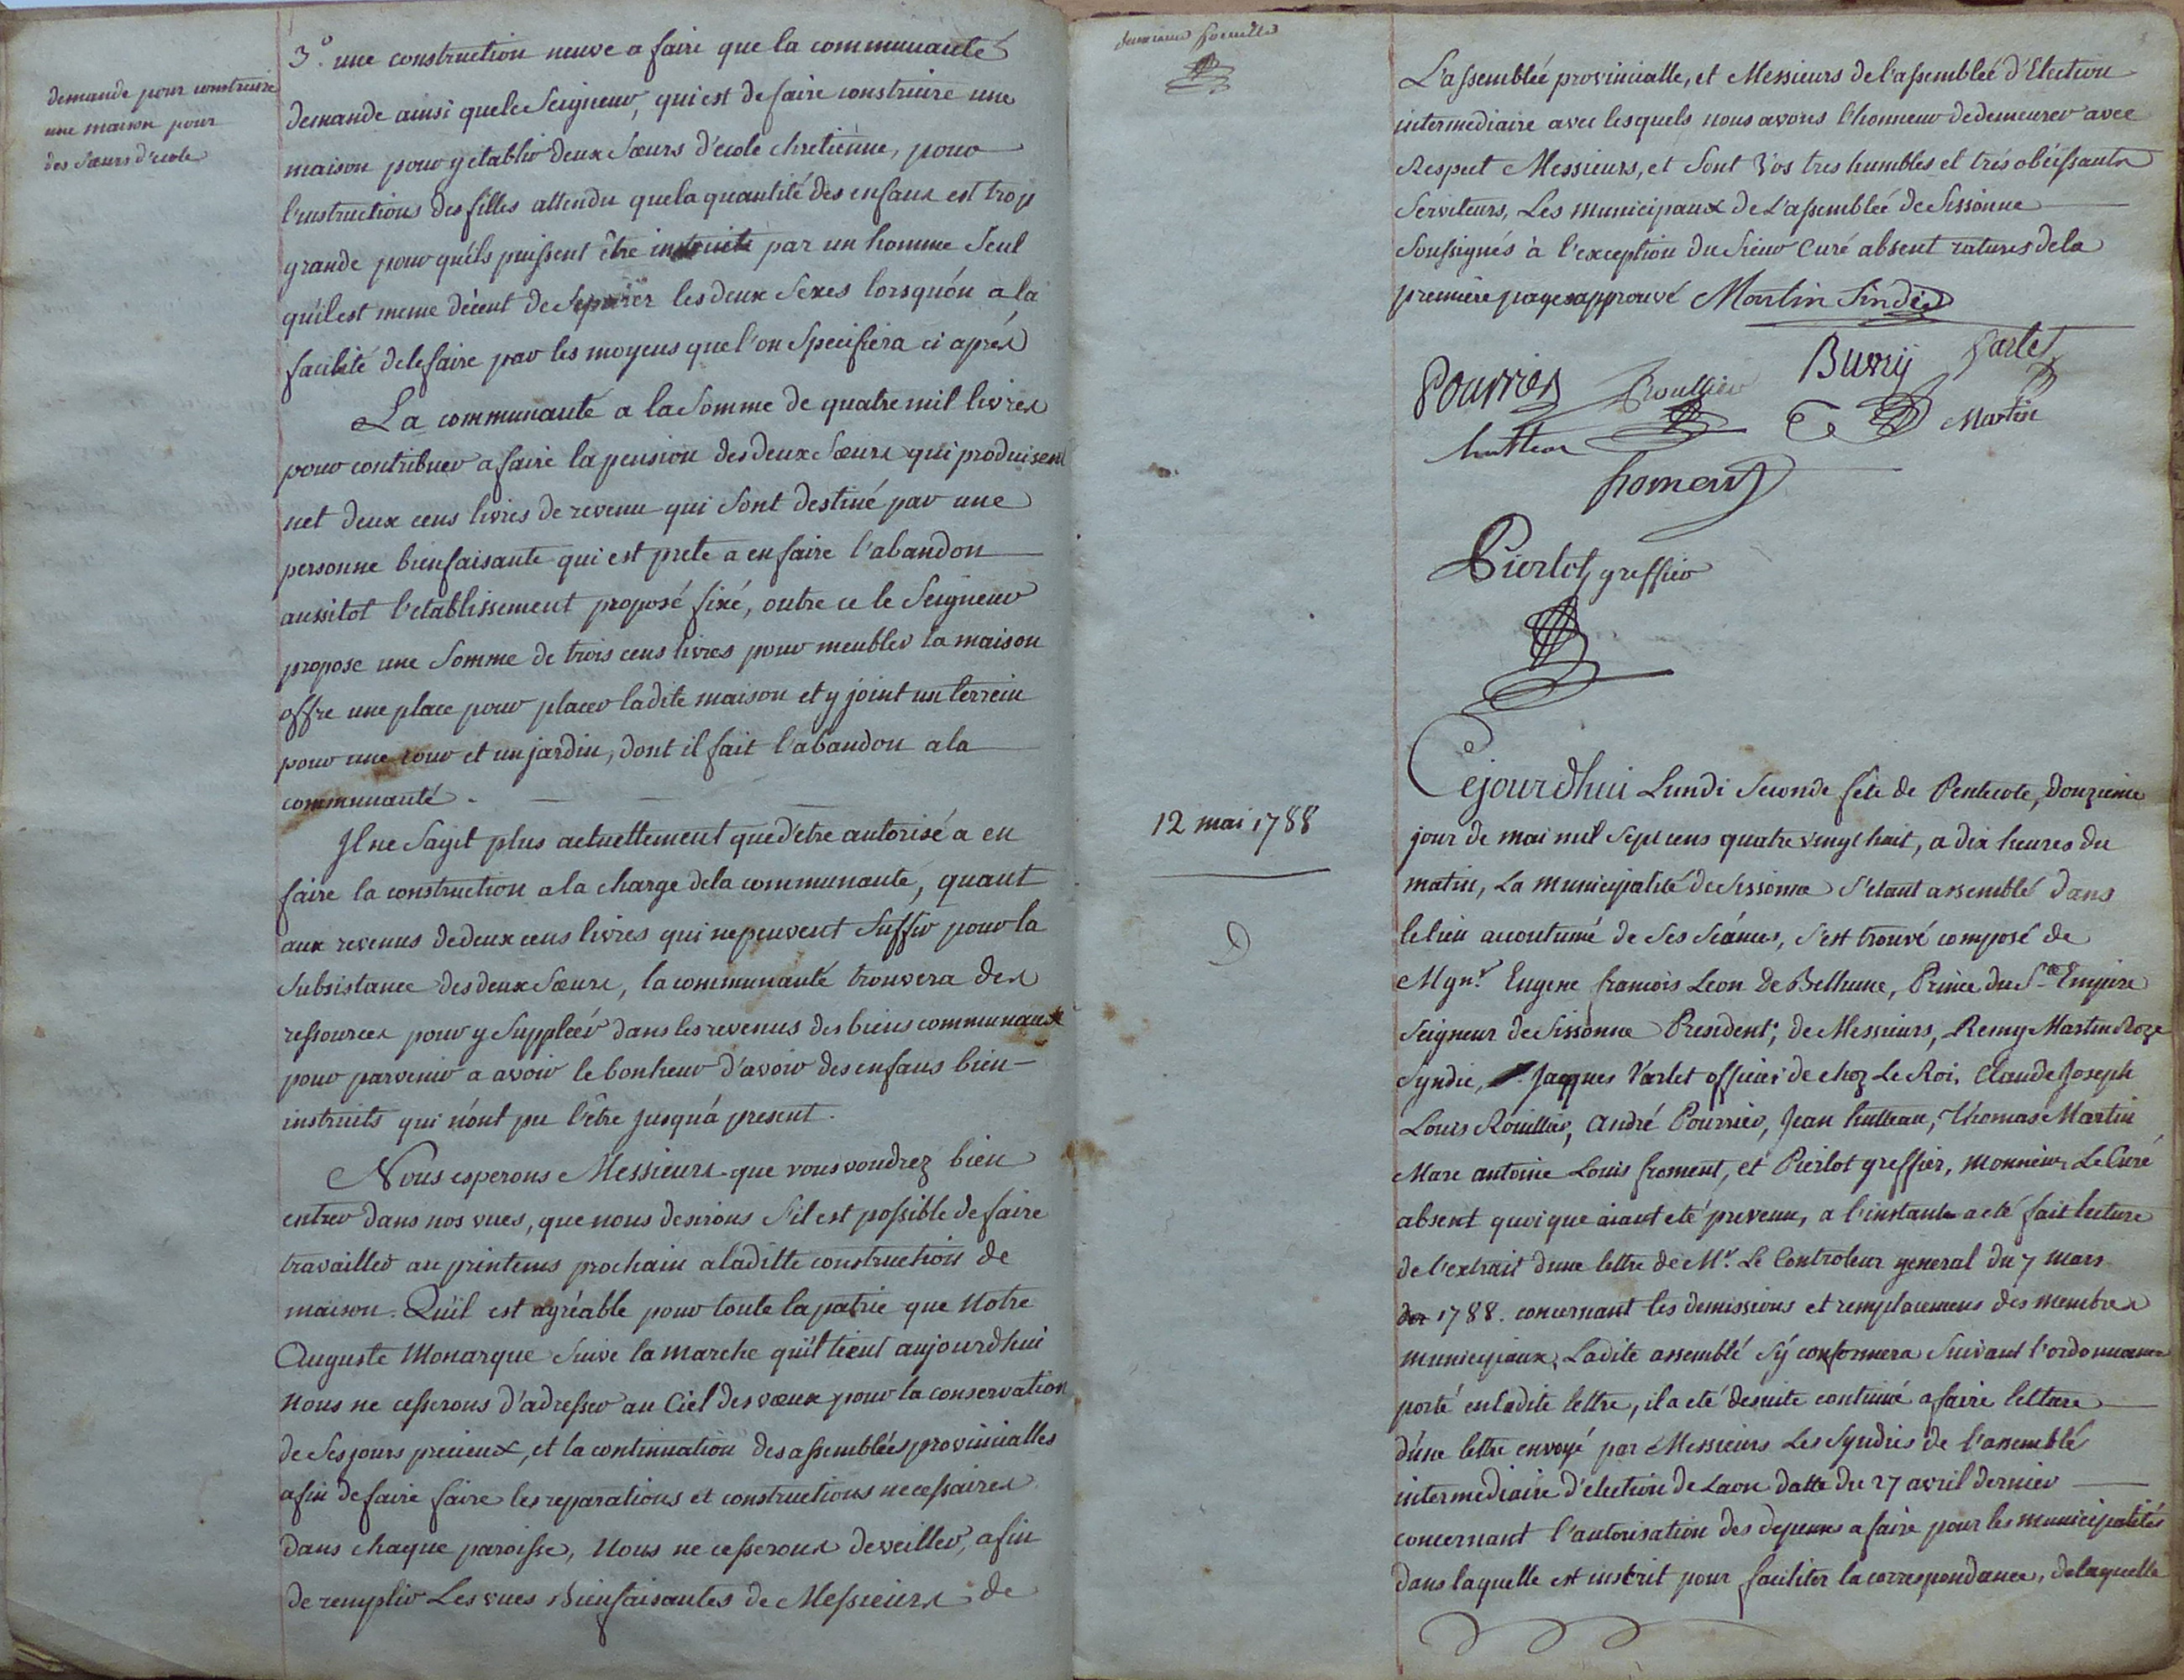 demande pour construire
une maison pour
des Sœurs d'ecole
3.° une construction neuve a faire que la communauté
demande ainsi que le Seigneur, qui est de faire construire une
maison pour y etablir deux Sœurs d'ecole chretienne, pour
l'instructions des filles attendu que la quantité des enfans est trop
grande pour qu'ils puissent être instruits par un homme Seul
qu'il est meme décent de Separer les deux Sexes lorsqu'on a la
facilité de le faire par les moyens que l'on Specifiera ci après
La communauté a la Somme de quatre mil livres
pour contribuer a faire la pension des deux Sœurs qui produisent
net deux cens livres de revenu qui Sont destiné par une
personne bienfaisante qui est prete a en faire l'abandon
aussitot l'etablissement proposé fixé, outre ce le Seigneur
propose une Somme de trois cens livres pour meubler la maison
offre une place pour placer ladite maison et y joint un terrein
pour une cour et un jardin, dont il fait l'abandon a la
communauté.
Il ne Sagit plus actuellement que d'etre autorisé a en
faire la construction a la charge de la communaute, quant
aux revenus de deux cens livres qui ne peuvent Suffir pour la
Subsistance des deux Sœurs, la communauté trouvera des
ressources pour y Suppleér dans les revenus des biens communaux
pour parvenir a avoir le bonheur d'avoir des enfans bien
instruits qui n'ont pu l'être jusqu'à present.
Nous esperons Messieurs que vous voudrez bien
entrer dans nos vues, que nous desirons S'il est possible de faire
travailler au printems prochain a laditte construction de
maison. Qu'il est agréable pour toute la patrie que Notre
Auguste Monarque Suive la marche qu'il tient aujourdhui
Nous ne cesserons d'adresser au Ciel des vœux pour la conservation
de Ses jours precieux, et la continuation des assemblées provincialles
afin de faire faire les reparations et constructions necessaires
dans chaque paroisse, Nous ne cesserons de veiller, afin
de remplir Les vues Bienfaisantes de Messieurs de
L'assemblée provincialle, et Messieurs de l'assemblée d'Election
intermediaire avec lesquels nous avons l'honneur de demeurer avec
Respect Messieurs, et Sont Vos tres humbles et trés obéissants
Serviteurs, Les Municipaux de L'assemblée de Sissonne
Soussignés à l'exception du Sieur Curé absent ratures de la
premiere page approuvé Martin Sindic
Pourrier Rouillier Buvry Varlet
hutteau Martin
froment
Pierlot greffier
12 mai 1788
Cejourdhui Lundi Seconde fête de Pentecote, Douzieme
jour de mai mil Sept cens quatre vingt huit, a dix heures du
matin, La municipalité de Sissonne S'etant assemblé dans
le lieu accoutumé de Ses Séances, s'est trouvé composé de
Mgn.r Eugene francois Leon De Bethune, Prince du S.te Empire
Seigneur de Sissonne President; de Messieurs, Remy Martin Roze
Syndic, Jacques Varlet officier de chez Le Roi, Claude Joseph
Louis Rouillier, André Pourrier, Jean hutteau, Thomas Martin
Marc antoine Louis froment, et Pierlot greffier, Monsieur Le Curé
absent quoique aiant eté prevenu, a l'instant a eté fait lecture
de l'extrait d'une lettre de M.r Le Controleur general du 7 mars
1788. concernant les demissions et remplacemens des membres
municipaux, Ladite assemblé S'y conformera Suivant l'ordonnance
porté en Ladite lettre, il a eté desuite continué a faire lettare
d'une lettre envoyé par Messieurs Les Syndics de l'assemblé
intermediaire d'election de Laon datté du 27 avril dernier
concernant l'autorisation des depenses a faire pour les municipalités
dans laquelle est inscrit pour faciliter la correspondance, de laquelle